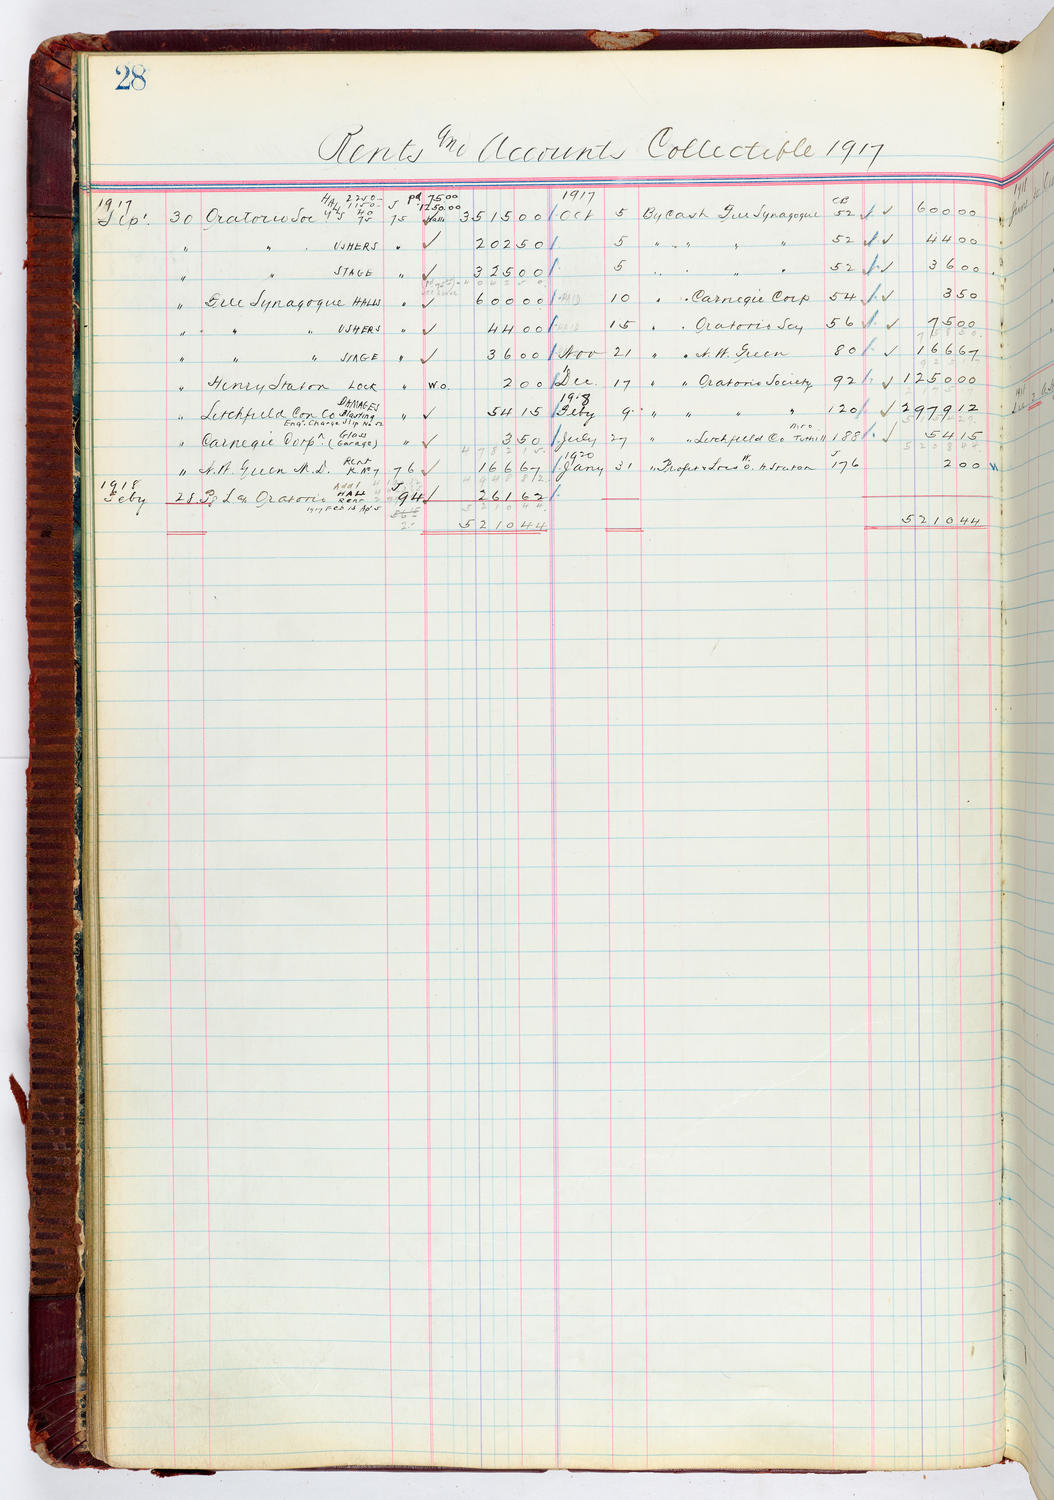 28
Rents and Accounts Collectible 1917
1917 Sep! 30 Oratorio Soc HALL 2250- 1150- 4/5 40 75 J 75 pd 75.00 1250.00 Hall 3515 00 1917 Oct 5 By Cash Free Synagogue CB 52 600 00
" " " USHERS " 202 50 5 " " " " 52 44 00
" " STAGE " 325 00 5 " " " " 52 36 00
" Free Synagogue HALL " 600 00 PAID 10 " " Carnegie Corp 54 3 50
" " " USHERS " 44 00 PAID 15 " " Oratorio Socy 56 75 00
" " " STAGE " 36 00 Nov 21 " " N.H. Green 80 166 67
" Henry Staton Lock " W.O. 2 00 Dec. 17 " " Oratorio Society 92 1250 00
" Litchfield Con Co DAMAGES Blasting Eng. Charge Slip No 12 " 54 15 1918 Feby 9 " " " " 120 2979 12
" Carnegie Corpn Glass (Garage) " 3 50 July 27 " " Litchfield Co 188 54 15
" N.H. Green M.D. Rent 76 166 67 1920 Jany 31 " Profit & Loss H. Staton J 176 2 00
1918 Feby 28 Oratorio Addl HALL Rent 1917 Feb 13 Ap 5 J 94 261 62
5210 44 5210 44